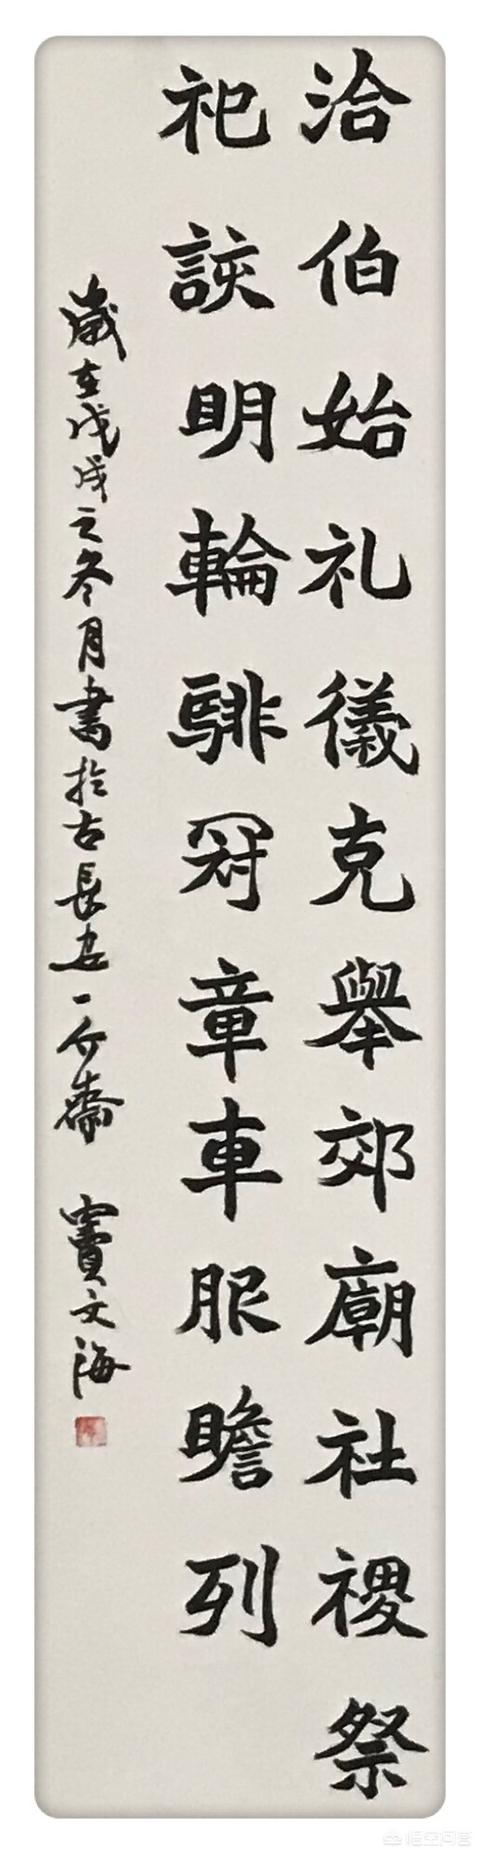 洽伯始礼儀克舉郊廟社稷祭
祀詼明輪騑冠章車服瞻列
歲在戊戌之冬月書於古長安一介齋 竇文海
悟空问答